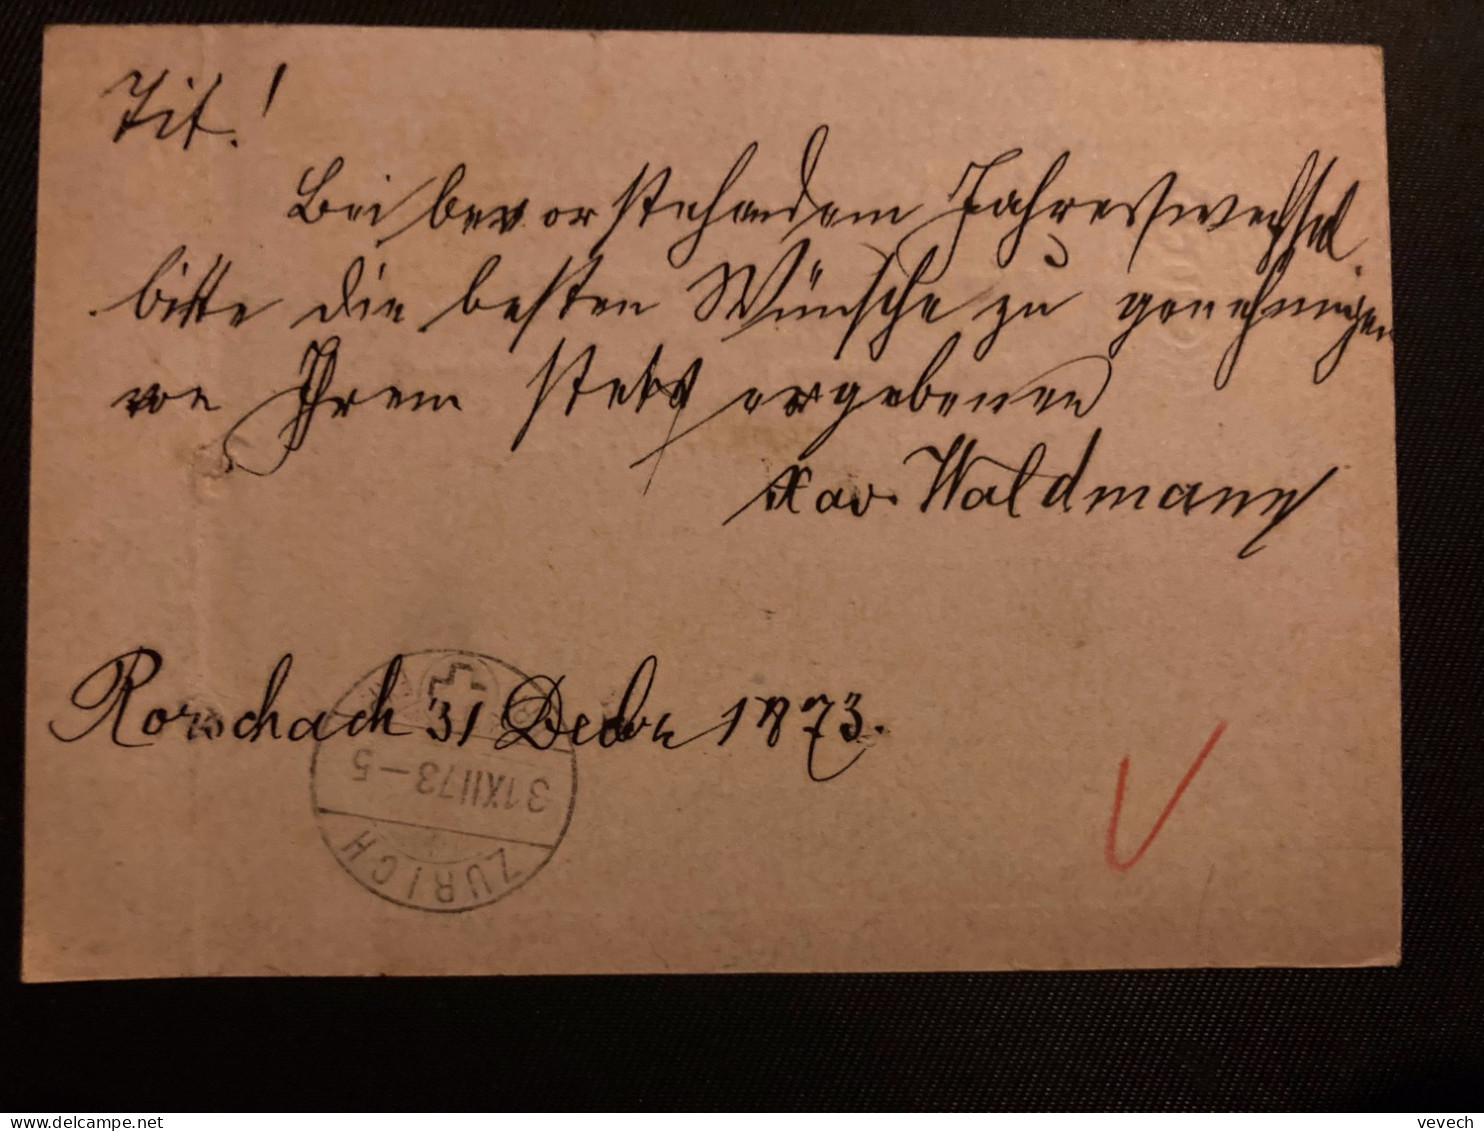 Tit.!
Bei bevorstehendem Jahreswechsel
bitte die besten Wünsche zu genehmigen
von Ihrem stets ergebenen
Xav. Waldmann
Rorschach 31 Decbr 1873.
31 XII 73 – 5
ZÜRICH
vevech